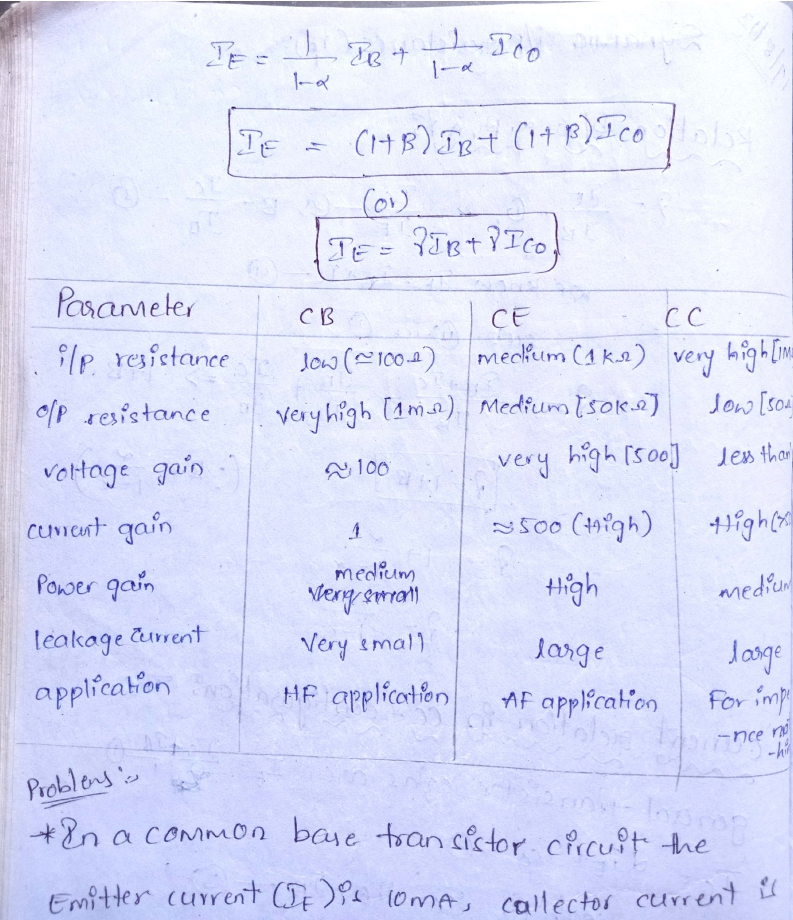 I_E = 1/(1-α) I_B + 1/(1-α) I_CO
I_E = (1+β) I_B + (1+β) I_CO
(or)
I_E = γI_B + γI_CO
Parameter CB CE CC
i/p resistance low (≈100Ω) medium (1kΩ) very high [1M
o/p resistance very high [1mΩ] Medium [50kΩ] low [50Ω
voltage gain ≈100 very high [500] less than
current gain 1 ≈500 (High) High (
Power gain medium very small High medium
leakage current Very small large large
application HF application AF application For impe
-nce
Problems:-
*In a common base transistor circuit the
Emitter current (I_E) is 10mA, collector current is